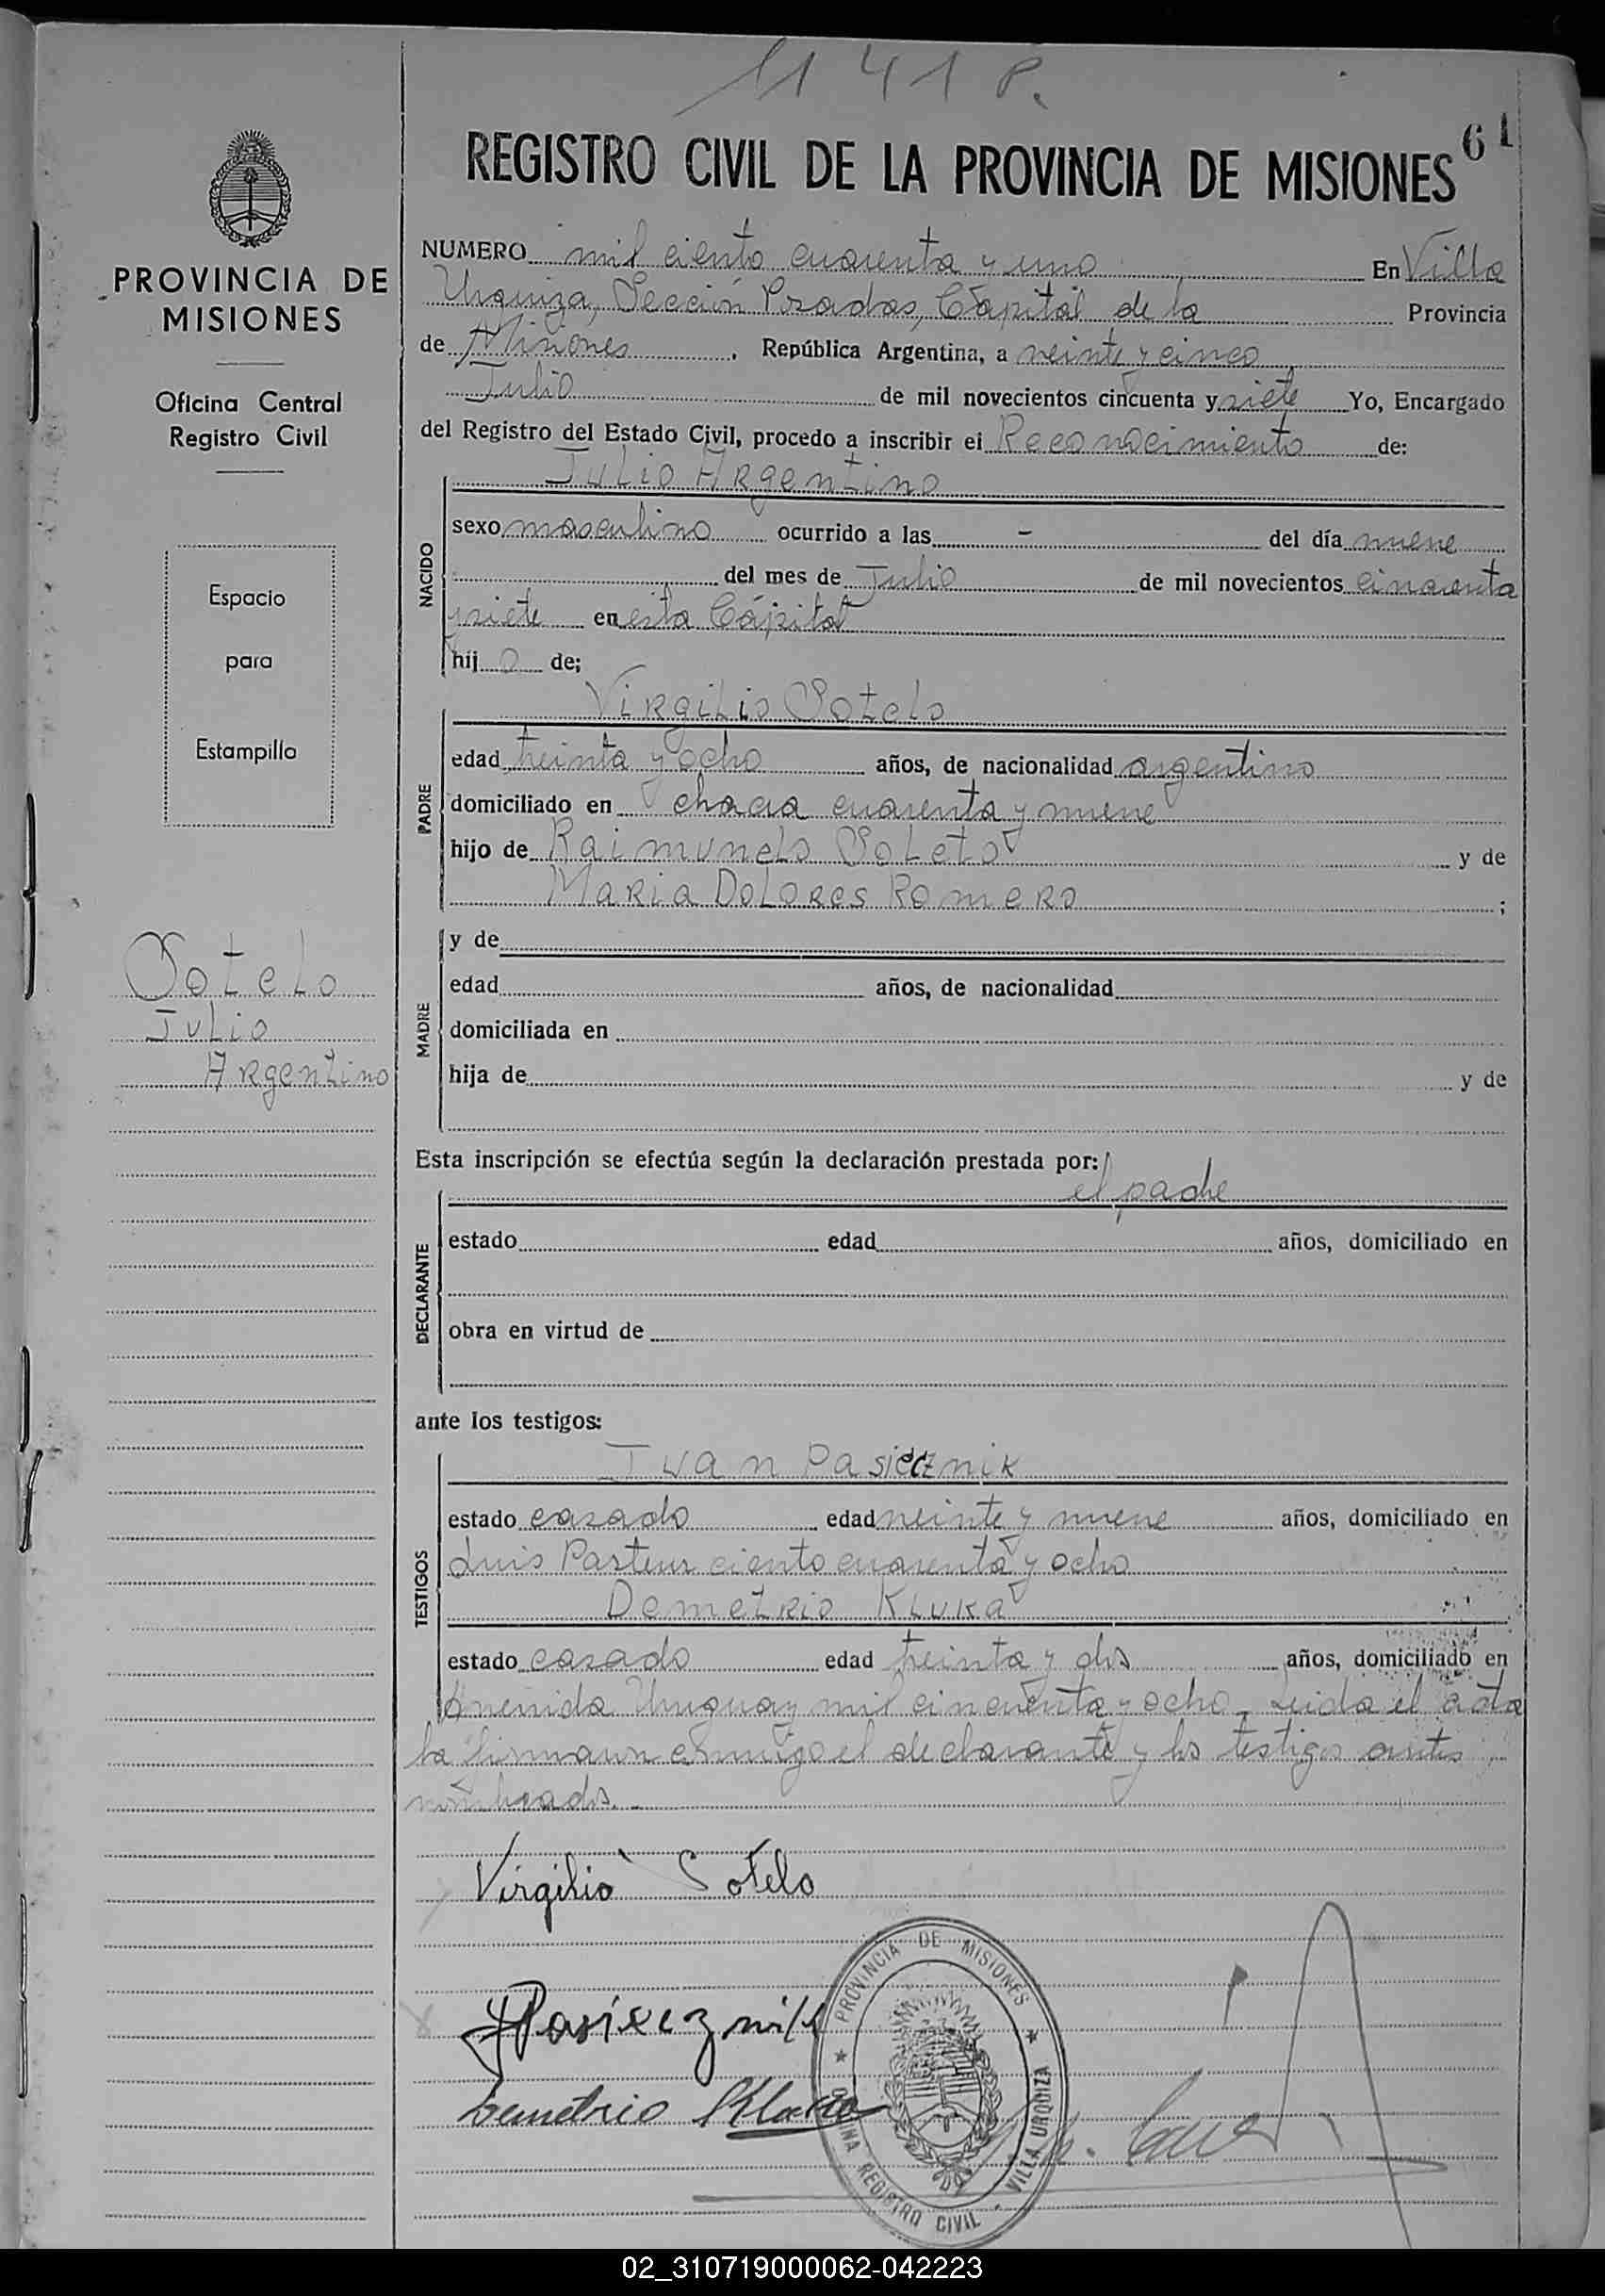 1141 P.
61
REGISTRO CIVIL DE LA PROVINCIA DE MISIONES
PROVINCIA DE
MISIONES
Oficina Central
Registro Civil
Espacio
para
Estampilla
Sotelo
Julio
Argentino
NUMERO mil ciento cuarenta y uno En Villa
Urquiza, Sección Posadas, Cápital de la Provincia
de Misiones. República Argentina, a veinte y cinco
Julio de mil novecientos cincuenta y siete Yo, Encargado
del Registro del Estado Civil, procedo a inscribir el Reconocimiento de:
Julio Argentino
NACIDO
sexo masculino ocurrido a las - del día nueve
del mes de Julio de mil novecientos cincuenta
y siete en esta Cápital
hij o de;
Virgilio Sotelo
PADRE
edad treinta y ocho años, de nacionalidad argentino
domiciliado en chacra cuarenta y nueve
hijo de Raimundo Soleto y de
Maria Dolores Romero ;
MADRE
y de
edad años, de nacionalidad
domiciliada en
hija de y de
Esta inscripción se efectúa según la declaración prestada por:
el padre
DECLARANTE
estado edad años, domiciliado en
obra en virtud de
ante los testigos:
Ivan Pasiecznik
TESTIGOS
estado casado edad veinte y nueve años, domiciliado en
Luis Pasteur ciento cuarenta y ocho
Demetrio Kluka
estado casado edad treinta y dos años, domiciliado en
Avenida Uruguay mil cincuenta y ocho. Leida el acta
la firmaron conmigo el declarante y los testigos antes
nombrados.
Virgilio Sotelo
Pasiecznik
Demetrio Kluka
PROVINCIA DE MISIONES
OFICINA REGISTRO CIVIL
VILLA URQUIZA
02_310719000062-042223